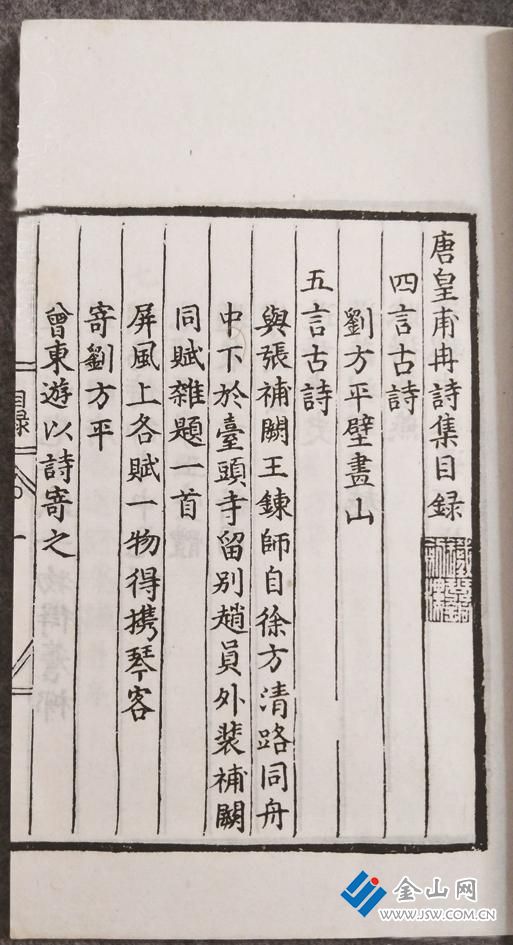 唐皇甫冉詩集目録
四言古詩
劉方平壁畫山
五言古詩
與張補闕王鍊師自徐方清路同舟
中下於臺頭寺留別趙員外裴補闕
同賦雜題一首
屏風上各賦一物得携琴客
寄劉方平
曾東遊以詩寄之
目録
一
金山网
www.JSW.COM.CN